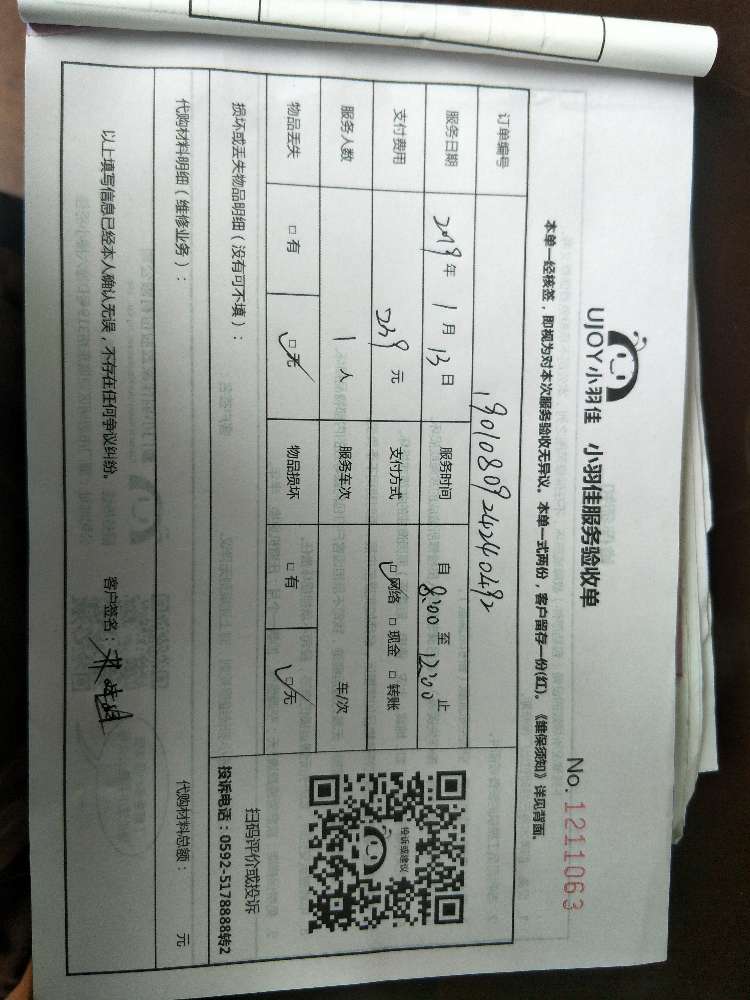 UJOY小羽佳 小羽佳服务验收单
No. 1211063
本单一经核签，即视为对本次服务验收无异议。本单一式两份，客户留存一份(红)。《维保须知》详见背面。
订单编号 1901080924240492
服务日期 2019年 1月 13日 服务时间 自 8:00 至 12:00 止
支付费用 239 元 支付方式 ☑网络 □现金 □转账
服务人数 1 人 服务车次 车/次
物品丢失 □有 ☑无 物品损坏 □有 ☑无
投诉或建议
扫码评价或投诉
投诉电话：0592-5178888转2
损坏或丢失物品明细（没有可不填）：
代购材料明细（维修业务）： 代购材料总额： 元
以上填写信息已经本人确认无误，不存在任何争议纠纷。 客户签名：